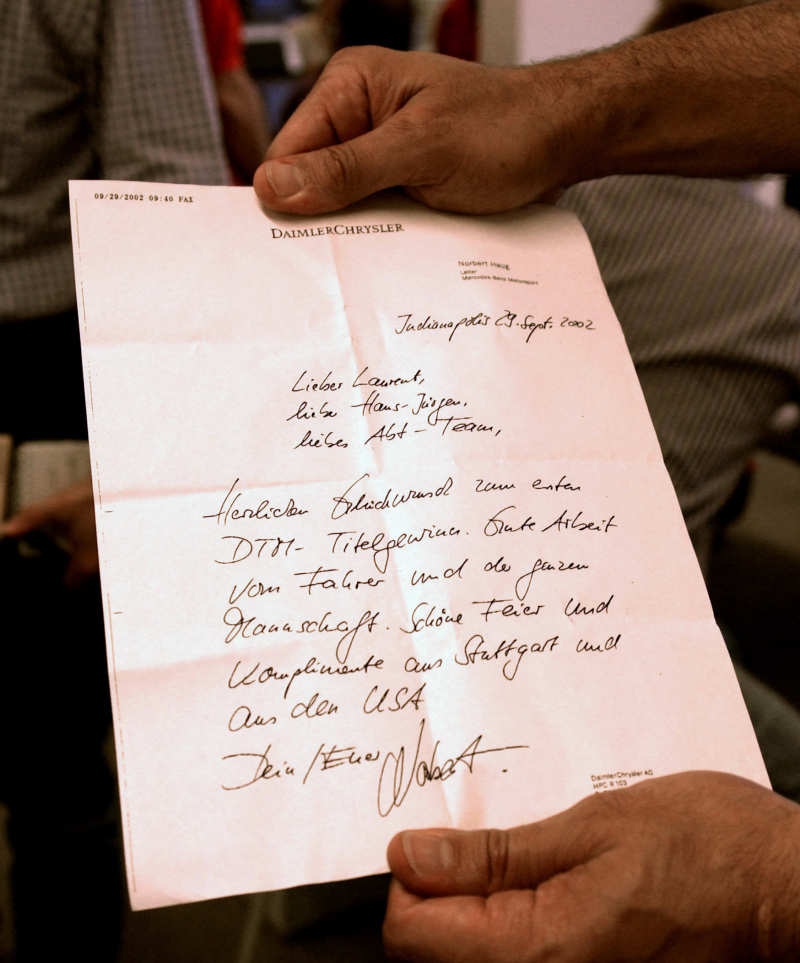 09/29/2002 09:40 FAX
DAIMLERCHRYSLER
Norbert Haug
Leiter
Mercedes-Benz Motorsport
Indianapolis 29. Sept. 2002
Lieber Laurent,
lieber Hans-Jürgen,
liebes Abt-Team,
Herzlichen Glückwunsch zum ersten
DTM-Titelgewinn. Gute Arbeit
vom Fahrer und der ganzen
Mannschaft. Schöne Feier und
Komplimente aus Stuttgart und
aus den USA
Dein/Euer Norbert.
DaimlerChrysler AG
HPC R 103